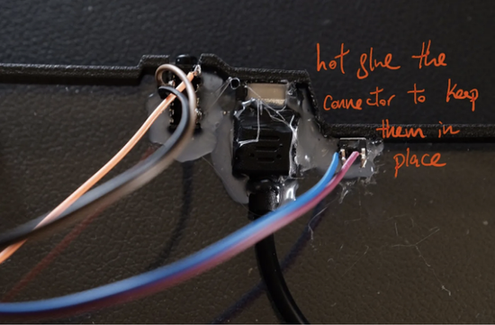 hot glue the
connector to keep
them in
place